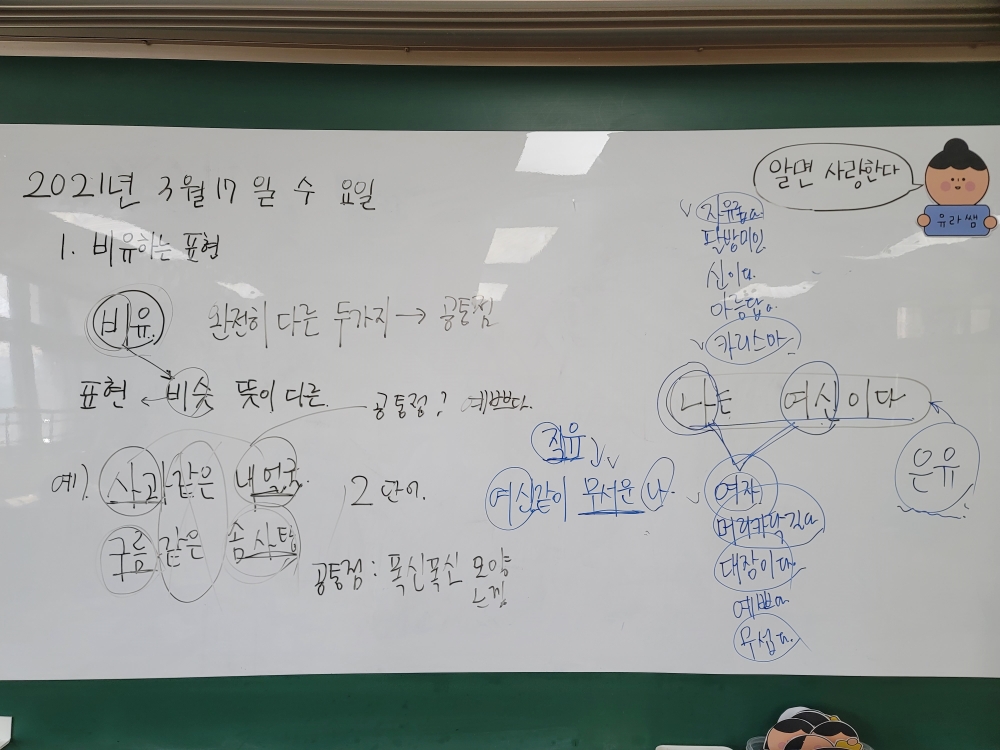 2021년 3월 17일 수요일
1. 비유하는 표현
비유 완전히 다른 두가지 → 공통점
표현 ← 비슷 뜻이 다른
공통점? 예쁘다.
예). 사과 같은 내 얼굴
2 단어.
구름 같은 솜사탕
공통점 : 폭신폭신 모양
느낌
알면 사랑한다
유라쌤
자유롭다
팔방미인
신이다
아름답다.
카리스마.
나는 여신이다
은유
직유
여신같이 무서운 나.
여자.
머리카락 길다
대장이다.
예쁘다
무섭다.